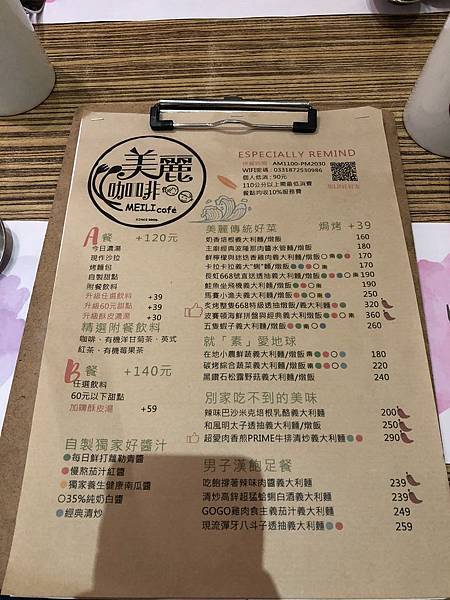 美麗
咖啡
MEILI café
SINCE 2006
ESPECIALLY REMIND
AM1100-PM2030
WIFI密碼：0331872530986
個人低消：90元
110公分以上需最低消費
餐點均收10%服務費
A餐 +120元
今日濃湯
現作沙拉
烤麵包
自製甜點
附餐飲料
升級任選飲料 +39
升級60元甜點 +39
升級酥皮濃湯 +30
精選附餐飲料
咖啡、有機洋甘菊茶、英式
紅茶、有機莓果茶
B餐 +140元
任選飲料
60元以下甜點
加購酥皮湯 +59
自製獨家好醬汁
每日鮮打蘿勒青醬
慢熬茄汁紅醬
獨家養生健康南瓜醬
35%純奶白醬
經典清炒
美麗傳統好菜 焗烤 +39
奶香培根義大利麵/燉飯 160
主廚經典波隆那肉醬水管麵/燉飯 160
鮮檸檬與迷迭香雞肉義大利麵/燉飯 170
卡拉卡拉義大"蝸"麵/燉飯 180
長虹668號直送透抽義大利麵/燉飯 190
鮭魚坐飛機義大利麵/燉飯 190
馬賽小漁夫義大利麵/燉飯 200
炙烤整隻668特級透抽燉飯/義大利麵 320
皮賽頓海鮮拼盤與經典義大利麵/燉飯 360
五隻蝦子義大利麵/燉飯 260
就「素」愛地球
在地小農鮮蔬義大利麵/燉飯 180
碳烤綜合蔬菜義大利麵/燉飯 220
黑鑽石松露野菇義大利麵/燉飯 240
別家吃不到的美味
辣味巴沙米克培根乳酪義大利麵 200
和風明太子透抽義大利麵/燉飯 250
超愛肉香煎PRIME牛排清炒義大利麵 290
男子漢飽足餐
吃飽撐著辣味肉醬義大利麵 239
清炒高鋅超猛蛤蜊白酒義大利麵 249
GOGO雞肉食主義茄汁義大利麵 249
現流彈牙八斗子透抽義大利麵 259